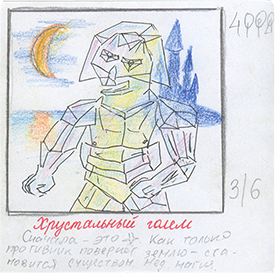 4
3/6
Хрустальный голем
Сначала – это Как только
противник повернет землю – ста-
новится существом без магии.